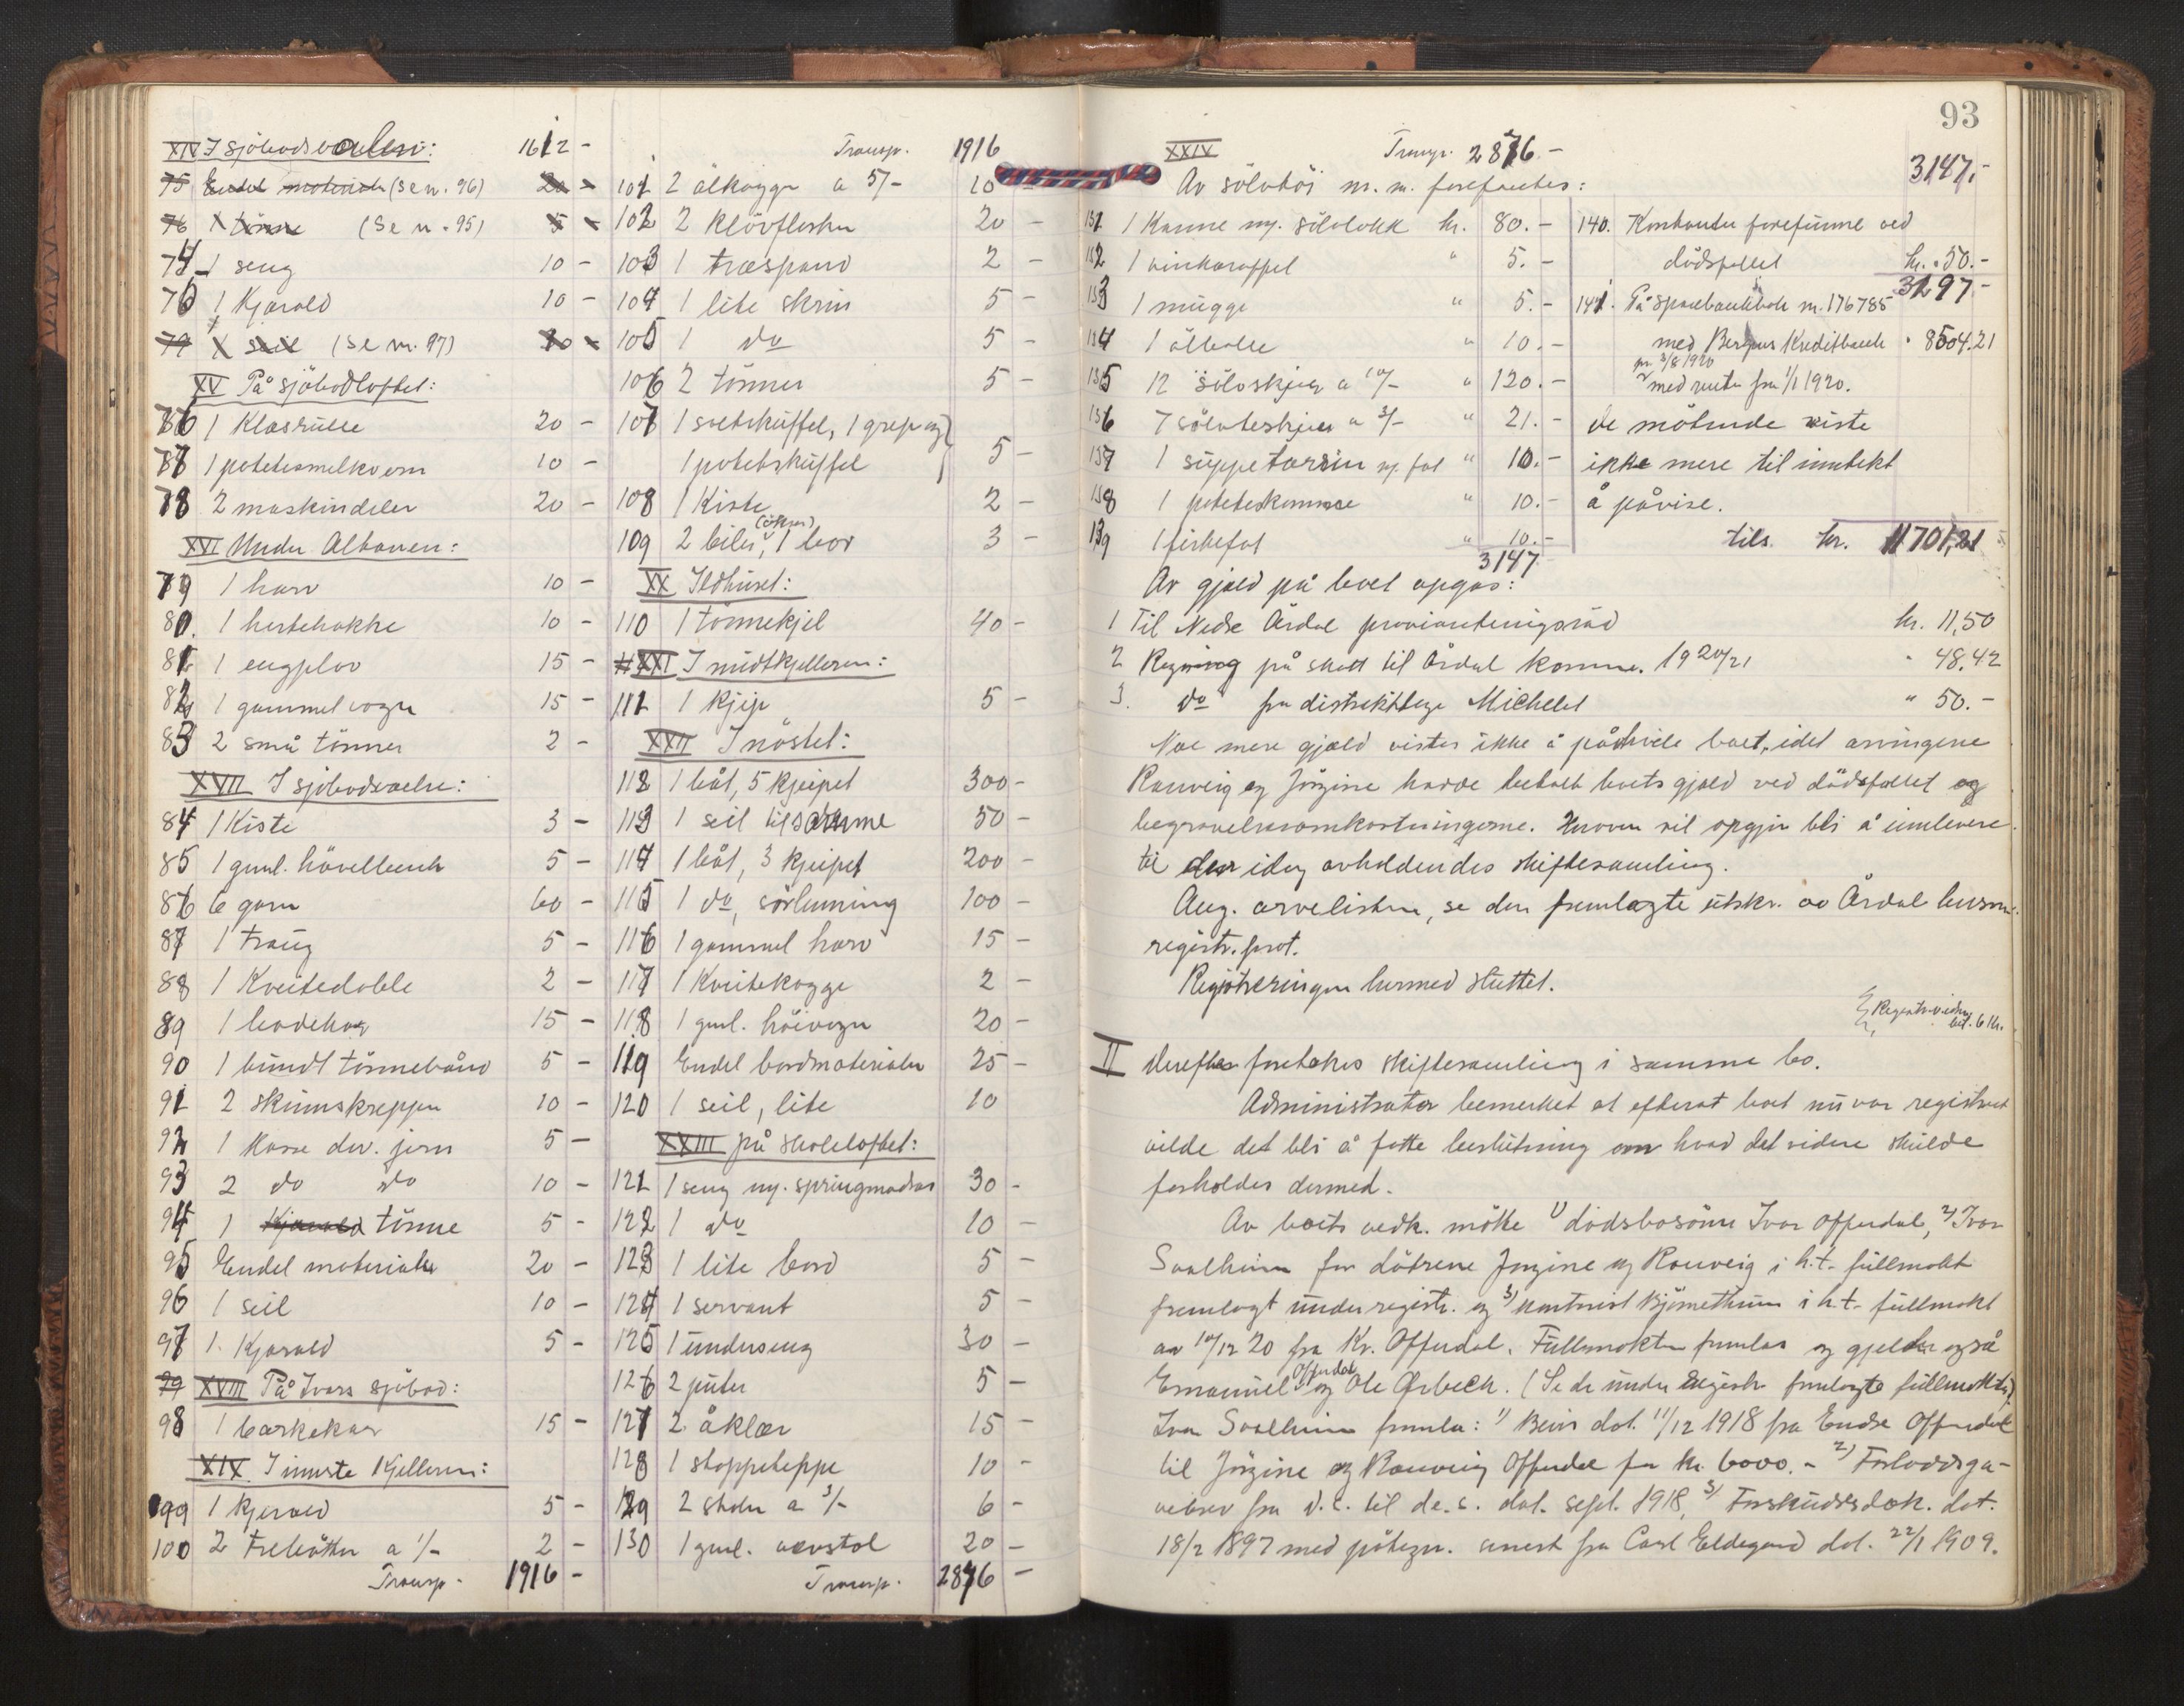 XIV I sjöbodsvalen: 1612 -
75 Endel materialer (se n. 96) 20 -
76 1 tönne (se n. 95) 5 -
74 1 seng 10 -
75 1 Kjørald 10 -
79 1 seil (se nr. 97) 20 -
XV På sjöbodloftet:
76 1 Klesrulle 20 -
77 1 potetesmelkvern 10 -
78 2 maskindeler 20 -
XVI Under Altanen:
79 1 harv 10 -
80. 1 hestehakke 10 -
81 1 engplov 15 -
82 1 gammel vogn 15 -
83 2 små tönner 2 -
XVII I sjöbodsvalen:
84 1 Kiste 3 -
85 1 gml. hövelbenk 5 -
86 6 garn 60 -
87 1 traug 5 -
88 1 Kveitedoble 2 -
89 1 badekar 15 -
90 1 bundt tönnebånd 5 -
91 2 skinnskreppe 10 -
92 1 kasse div. jern 5 -
93 2 do do 10 -
94 1 Kjørald tönne 5 -
95 Endel materialer 20 -
96 1 seil 10 -
97 1. Kjørald 5 -
99 XVIII På Ivars sjöbod:
98 1 barkekar 15 -
XIX I innste Kjelleren:
99 1 Kjørald 5 -
100 2 Trebötter a 1/- 2 -
Transp. 1916 -
Transp. 1916
101 2 ålkagger a 5/- 10
102 2 klövflasker 20 -
103 1 træspand 2 -
104 1 lite skrin 5 -
105 1 do 5 -
106 2 tönner 5 -
107 1 saltskuffel, 1 grep og
1 potetskuffel 5 -
108 1 Kiste 2 -
109 2 biler (ökser), 1 bor 3 -
XX Ildhuset:
110 1 tönnekjel 40 -
XXI I midtkjelleren:
111 1 kjip 5 -
XXII I nöstet:
112 1 båt, 5 kjeipet 300 -
113 1 seil til samme 50 -
114 1 båt, 3 kjeipet 200 -
115 1 do, sörlenning 100 -
116 1 gammel harv 15 -
117 1 Kveitekagge 2 -
118 1 gml. höivogn 20 -
119 Endel bordmaterialer 25 -
120 1 seil, lite 10
XXIII på skoleloftet:
121 1 seng m. springmadras 30 -
122 1 do 10 -
123 1 lite bord 5 -
124 1 servant 5 -
125 1 underseng 30 -
126 2 puter 5 -
127 2 åklær 15 -
128 1 stoppeteppe 10 -
129 2 stoler a 3/- 6 -
130 1 gml. vevstol 20 -
Transp. 2876 -
93
XXIV Transp. 2876.-
Av sölvtöi m. m. forefantes:
131 1 Kanne m. sölvlokk kr. 80.-
132 1 vinkaraffel " 5.-
133 1 mugge " 5.-
134 1 ölbolle " 10.-
135 12 sölvskjeer a 10/- " 120.-
136 7 sölvteskjeer a 3/- " 21.-
137 1 suppetarrin m. fat " 10.-
138 1 poteteskomme " 10.-
139 1 fiskefat " 10.-
3147
3147.-
140. Kontanter forefunne ved
dödsfallet kr. 50.-
3197.-
141. På sparbankbok nr. 176785
med Bergens Kreditbank " 8504.21
pr. 3/8 1920
med rente fra 1/1 1920.
De mötende viste
ikke mere til inntekt
å påvise.
tils. kr. 11701,21
Av gjæld på boet opgas:
1 Til Nedre Årdal provianteringsråd kr. 11,50
2 Regning på skatt til Årdal komm. 1920/21 " 48.42
3. do fra distriktslege Michelet " 50.-
Noe mere gjæld vistes ikke å påhvile boet, idet arvingene
Rauveig og Jörgine havde betalt boets gjæld ved dödsfallet og
begravelsesomkostningerne. Herover vil opgjör bli å innlevere
til den idag avholdendes skiftesamling.
Ang. arvelisten, se den fremlagte utskr. av Årdal
registr. prot.
Registreringen hermed sluttet.
bet. 6 kr.
II Derefter foretokes skiftesamling i samme bo.
Administrator bemerket at efterat boet nu var registrert
vilde det bli å fatte beslutning om hvad det videre skulde
forholdes dermed.
Av boets vedk. mötte 1) dödsbosönn Ivar Offerdal, 2) Ivar
Svalheim for dötrene Jörgine og Rauveig i h.t. fullmakt
fremlagt under registr. og 3) kontorist i h.t. fullmakt
av 10/12 20 fra Kr. Offerdal. Fullmakten fremlas og gjelder også
Emanuel Offerdal og Ole Ørbeck. (Se de under registr. fremlagte fullmakter).
Ivar Svalheim fremla: 1) Bevis dat. 11/12 1918 fra Endre Offerdal
til Jörgine og Rauveig Offerdal for kr. 6000.- 2) Forloddsga-
vebrev fra d.s. til de.s. dat. sept. 1918, 3) Forskuddsdok. dat.
18/2 1897 med påtegn. senest fra Carl Eldegard dat. 22/1 1909.